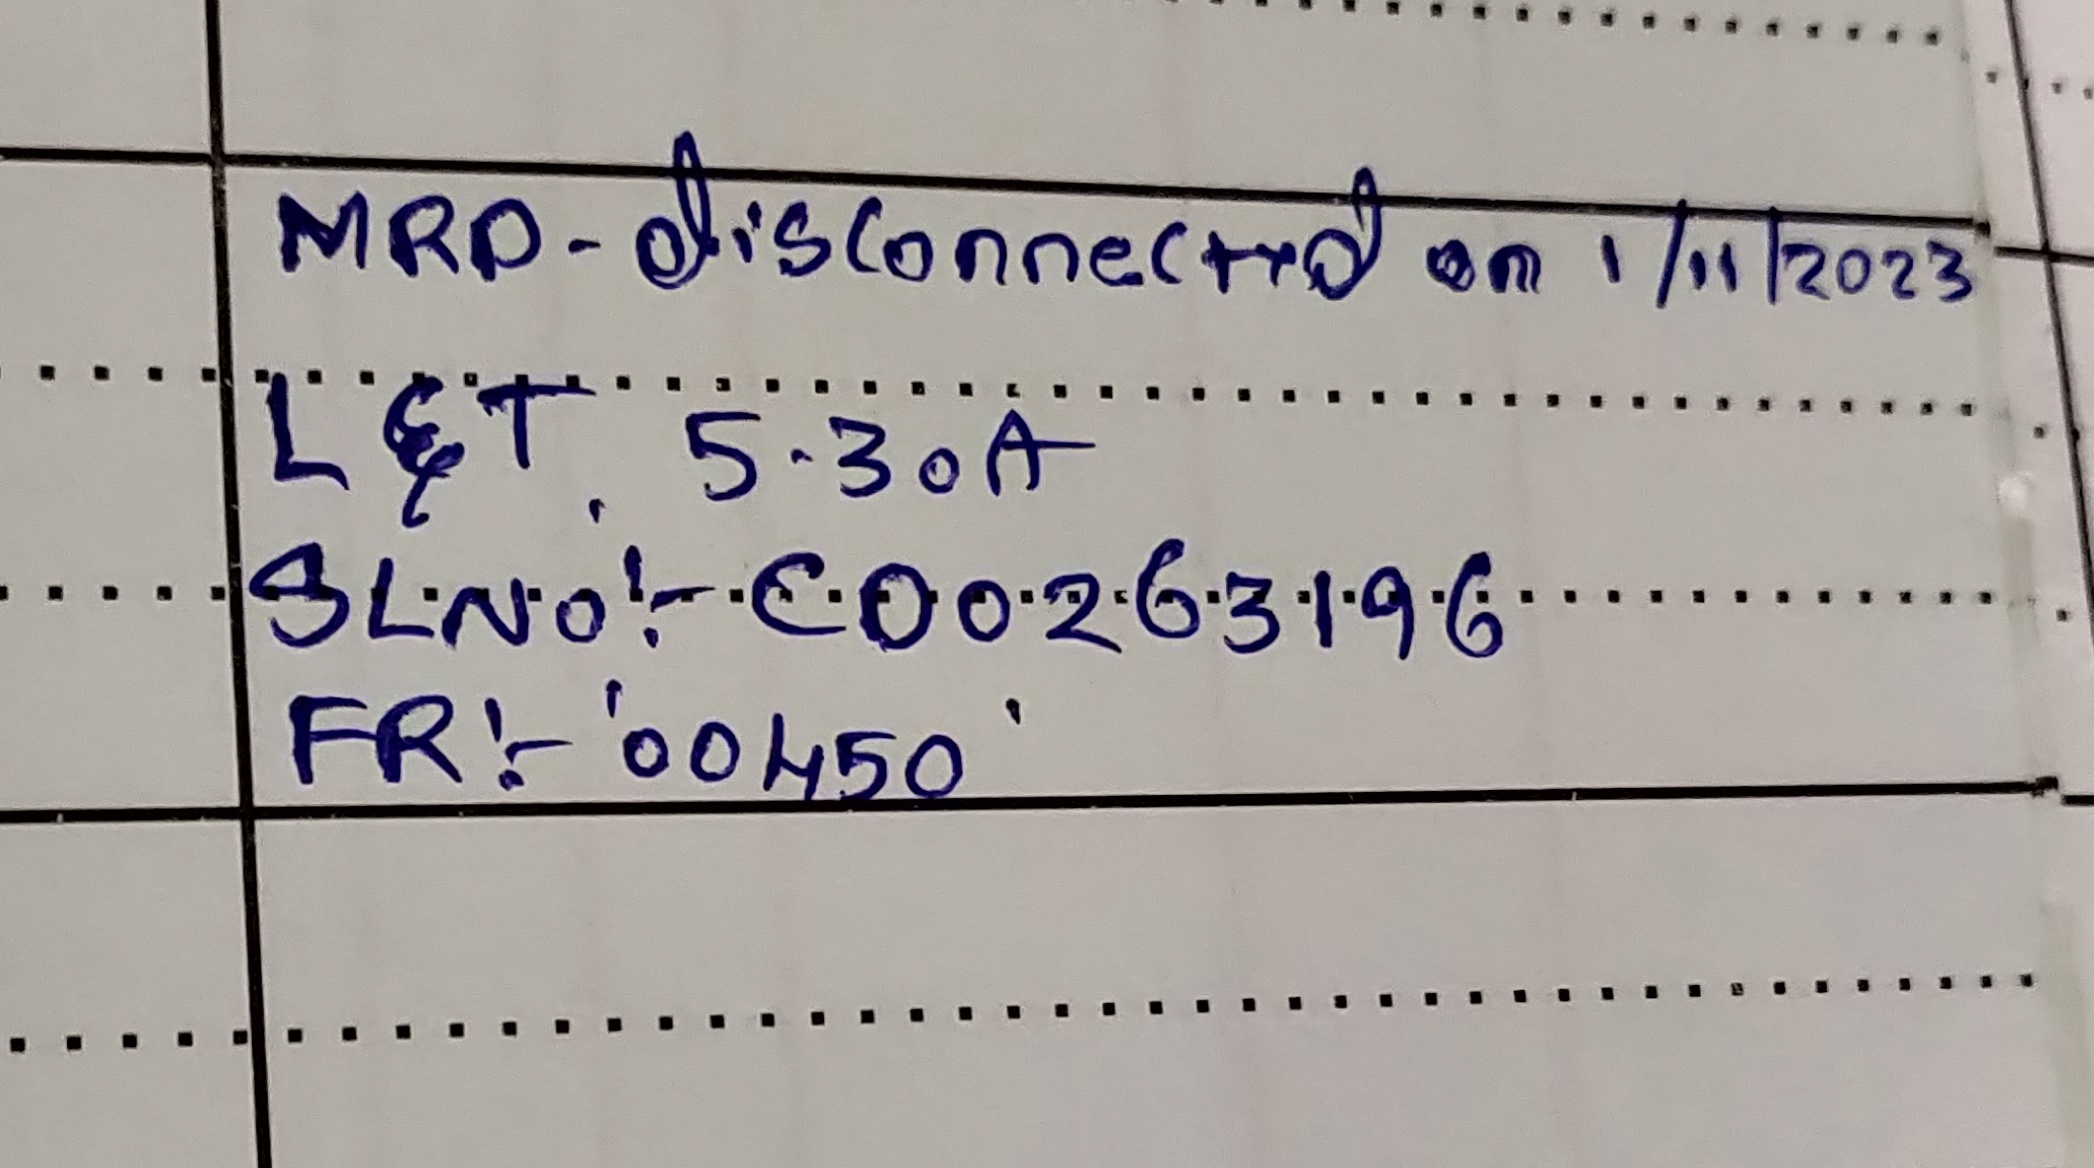 MRD-disconnected on 1/11/2023
L&T, 5-30A
SLNO:- CD0263196
FR:- '00450'